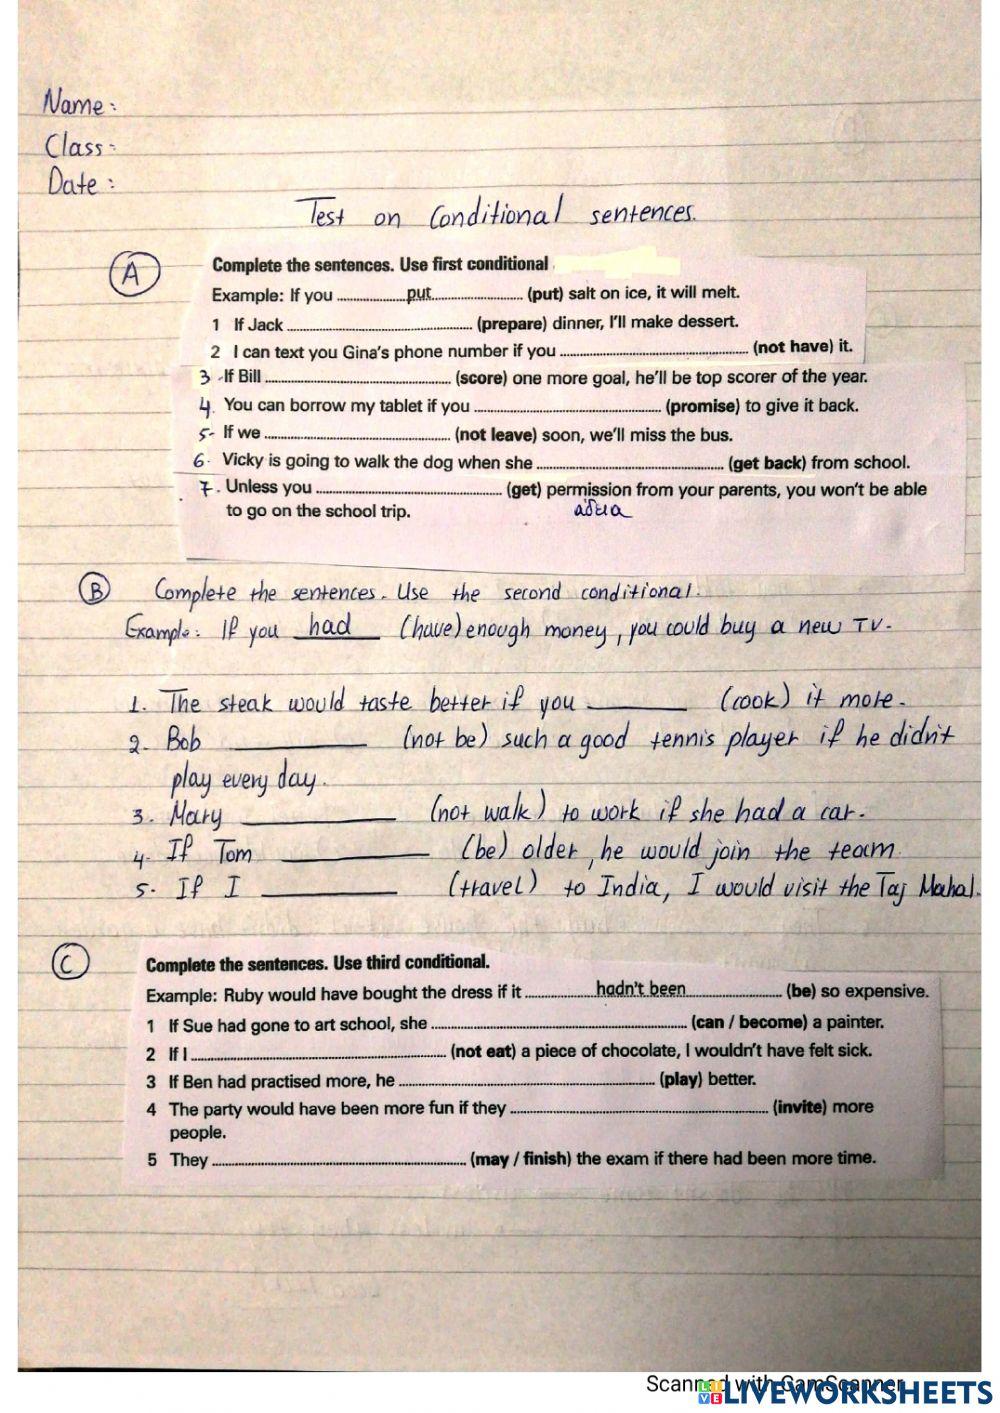 Name:
Class:
Date:
Test on Conditional sentences.
A
Complete the sentences. Use first conditional
Example: If you ........put........ (put) salt on ice, it will melt.
1 If Jack ................ (prepare) dinner, I'll make dessert.
2 I can text you Gina's phone number if you ................ (not have) it.
3 -If Bill ................ (score) one more goal, he'll be top scorer of the year.
4. You can borrow my tablet if you ................ (promise) to give it back.
5- If we ................ (not leave) soon, we'll miss the bus.
6- Vicky is going to walk the dog when she ................ (get back) from school.
7. Unless you ................ (get) permission from your parents, you won't be able
to go on the school trip. άδεια
B Complete the sentences. Use the second conditional.
Example: If you had (have) enough money, you could buy a new TV.
1. The steak would taste better if you ______ (cook) it more.
2- Bob ______ (not be) such a good tennis player if he didn't
play every day.
3. Mary ______ (not walk) to work if she had a car.
4- If Tom ______ (be) older, he would join the team.
5- If I ______ (travel) to India, I would visit the Taj Mahal.
C
Complete the sentences. Use third conditional.
Example: Ruby would have bought the dress if it ........hadn't been........ (be) so expensive.
1 If Sue had gone to art school, she ................ (can / become) a painter.
2 If I ................ (not eat) a piece of chocolate, I wouldn't have felt sick.
3 If Ben had practised more, he ................ (play) better.
4 The party would have been more fun if they ................ (invite) more
people.
5 They ................ (may / finish) the exam if there had been more time.
Scanned with CamScanner
LIVEWORKSHEETS